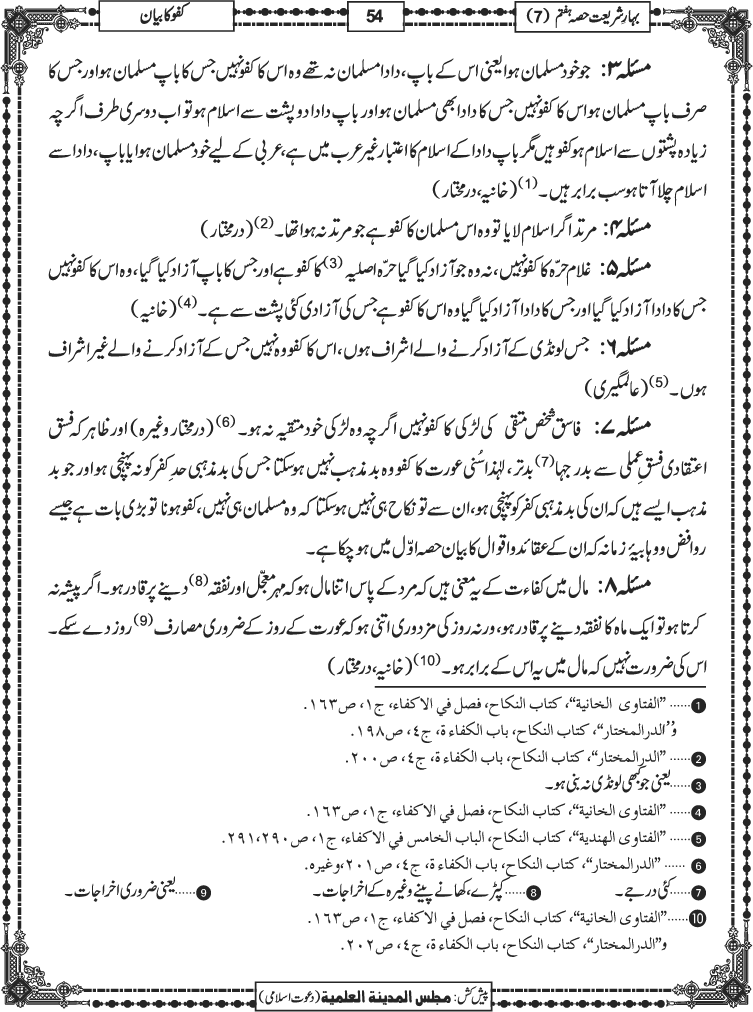 بہارِشریعت حصہ ہفتم (7)
54
کفو کا بیان
مسئلہ ۳: جو خود مسلمان ہوا یعنی اس کے باپ، دادا مسلمان نہ تھے وہ اس کا کفو نہیں جس کا باپ مسلمان ہو اور جس کا
صرف باپ مسلمان ہو اس کا کفو نہیں جس کا دادا بھی مسلمان ہو اور باپ دادا دو پشت سے اسلام ہو تو اب دوسری طرف اگرچہ
زیادہ پشتوں سے اسلام ہو کفو ہیں مگر باپ دادا کے اسلام کا اعتبار غیر عرب میں ہے، عربی کے لیے خود مسلمان ہوا یا باپ، دادا سے
اسلام چلا آتا ہو سب برابر ہیں۔ (1) (خانیہ، درمختار)
مسئلہ ۴: مرتد اگر اسلام لایا تو وہ اس مسلمان کا کفو ہے جو مرتد نہ ہوا تھا۔ (2) (درمختار)
مسئلہ ۵: غلام حرّہ کا کفو نہیں، نہ وہ جو آزاد کیا گیا حرّہ اصلیہ (3) کا کفو ہے اور جس کا باپ آزاد کیا گیا، وہ اس کا کفو نہیں
جس کا دادا آزاد کیا گیا اور جس کا دادا آزاد کیا گیا وہ اس کا کفو ہے جس کی آزادی کئی پشت سے ہے۔ (4) (خانیہ)
مسئلہ ۶: جس لونڈی کے آزاد کرنے والے اشراف ہوں، اس کا کفو وہ نہیں جس کے آزاد کرنے والے غیر اشراف
ہوں۔ (5) (عالمگیری)
مسئلہ ۷: فاسق شخص متقی کی لڑکی کا کفو نہیں اگرچہ وہ لڑکی خود متقیہ نہ ہو۔ (6) (درمختار وغیرہ) اور ظاہر کہ فسق
اعتقادی فسقِ عملی سے بدرجہا (7) بدتر، لہٰذا سُنی عورت کا کفو وہ بدمذہب نہیں ہوسکتا جس کی بدمذہبی حدِ کفر کو نہ پہنچی ہو اور جو بد
مذہب ایسے ہیں کہ ان کی بدمذہبی کفر کو پہنچی ہو، ان سے تو نکاح ہی نہیں ہوسکتا کہ وہ مسلمان ہی نہیں، کفو ہونا تو بڑی بات ہے جیسے
روافض و وہابیۂ زمانہ کہ ان کے عقائد و اقوال کا بیان حصہ اوّل میں ہوچکا ہے۔
مسئلہ ۸: مال میں کفاءت کے یہ معنی ہیں کہ مرد کے پاس اتنا مال ہو کہ مہر معجّل اور نفقہ (8) دینے پر قادر ہو۔ اگر پیشہ نہ
کرتا ہو تو ایک ماہ کا نفقہ دینے پر قادر ہو، ورنہ روز کی مزدوری اتنی ہو کہ عورت کے روز کے ضروری مصارف (9) روز دے سکے۔
اس کی ضرورت نہیں کہ مال میں یہ اس کے برابر ہو۔ (10) (خانیہ، درمختار)
1 ...... ”الفتاوی الخانیة“، کتاب النکاح، فصل في الاکفاء، ج۱، ص۱۶۳.
و”الدرالمختار“، کتاب النکاح، باب الکفاء ة، ج٤، ص۱۹۸.
2 ...... ”الدرالمختار“، کتاب النکاح، باب الکفاء ة، ج٤، ص۲۰۰.
3 ...... یعنی جو کبھی لونڈی نہ بنی ہو۔
4 ...... ”الفتاوی الخانیة“، کتاب النکاح، فصل في الاکفاء، ج۱، ص۱۶۳.
5 ...... ”الفتاوی الهندیة“، کتاب النکاح، الباب الخامس في الاکفاء، ج۱، ص۲۹۰،۲۹۱.
6 ...... ”الدرالمختار“، کتاب النکاح، باب الکفاء ة، ج٤، ص۲۰۱، وغیره.
7 ...... کئی درجے۔ 8 ...... کپڑے، کھانے پینے وغیرہ کے اخراجات۔ 9 ...... یعنی ضروری اخراجات۔
10 ...... ”الفتاوی الخانیة“، کتاب النکاح، فصل في الاکفاء، ج۱، ص۱۶۳.
و”الدرالمختار“، کتاب النکاح، باب الکفاء ة، ج٤، ص۲۰۲.
پیش کش: مجلس المدینة العلمیة (دعوت اسلامی)